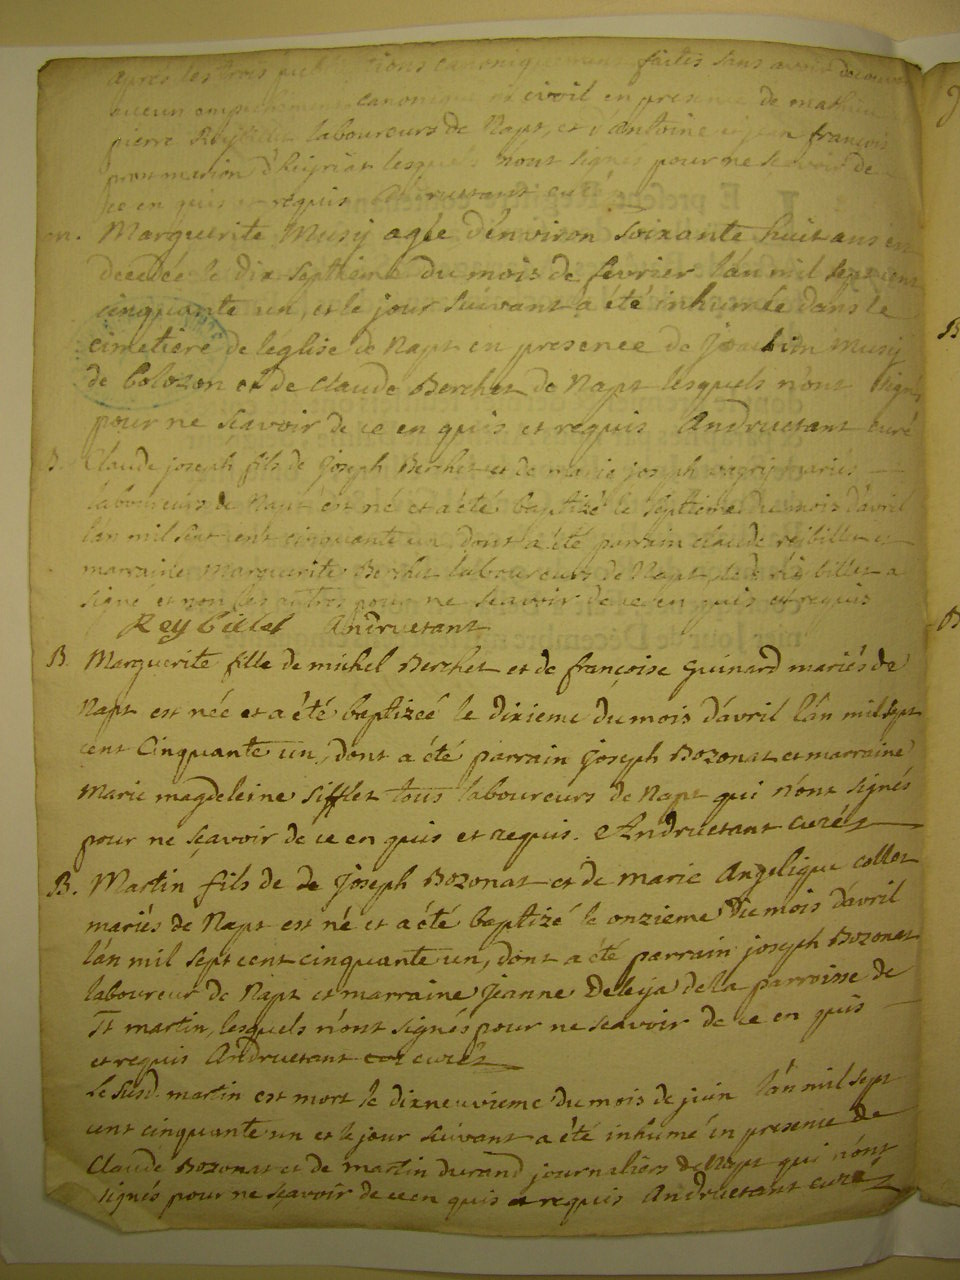 apres les trois publications canoniquement faites sans avoir decouvert
aucun empechement canonique ni civil en presence de mathieu
pierre Reybillet laboureurs de Napt, et d'Antoine et jean françois
marion d'heyriat lesquels n'ont signés pour ne sçavoir de
ce en quis et requis Andruetant curé
m. Marguerite Musy agée d'environ soixante huit ans est
decedée le dix septieme du mois de fevrier l'an mil sept cent
cinquante un, et le jour suivant a été inhumée dans le
cimetiere de l'eglise de Napt en presence de Joachim Musy
de Bolozon et de claude Berchet de Napt lesquels n'ont signés
pour ne sçavoir de ce en quis et requis Andruetant curé
B. Claude joseph fils de joseph Berchet et de marie joseph mariés
laboureurs de Napt est né et a été baptizé le septieme du mois d'avril
l'an mil sept cent cinquante un, dont a été parrain claude reibillet et
marraine Marguerite Berchet laboureurs de Napt, led. reibillet a
signé et non les autres pour ne sçavoir de ce en quis et requis
Reybillet Andruetant
B. Marguerite fille de michel Berchet et de françoise Guinard mariés de
Napt est née et a été baptizeé le dixieme du mois d'avril l'an mil sept
cent Cinquante un, dont a été parrain joseph Bozonat et marraine
Marie magdeleine Sifflet tous laboureurs de Napt qui n'ont signés
pour ne sçavoir de ce en quis et requis. Andruetant curé
B. Martin fils de de Joseph Bozonat et de marie Angelique collet
mariés de Napt est né et a été baptizé le onzieme du mois d'avril
l'an mil sept cent cinquante un, dont a été parrain joseph Bozonat
laboureur de Napt et marraine Jeanne Deleja de la parroisse de
St martin, lesquels n'ont signés pour ne sçavoir de ce en quis
et requis Andruetant curé
Le susd. martin est mort le dixneuvieme du mois de juin l'an mil sept
cent cinquante un et le jour suivant a été inhumé en presence de
Claude Bozonat et de martin durand journaliers de Napt qui n'ont
signés pour ne sçavoir de ce en quis et requis Andruetant curé